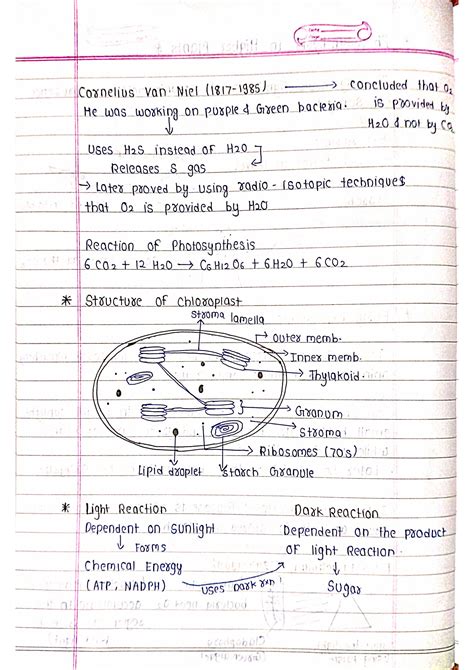 Cornelius Van Niel (1817-1985) → concluded that O2
He was working on purple & Green bacteria. is provided by
H2O & not by CO2
Uses H2S instead of H2O
Releases S gas
→ Later proved by using radio-Isotopic techniques
that O2 is provided by H2O
Reaction of Photosynthesis
6 CO2 + 12 H2O → C6H12O6 + 6H2O + 6CO2
* Structure of Chloroplast
Stroma lamella
Outer memb.
Inner memb.
Thylakoid.
Granum
Stroma
Ribosomes (70's)
Lipid droplet Starch Granule
* Light Reaction Dark Reaction
Dependent on Sunlight Dependent on the product
↓ Forms of light Reaction
Chemical Energy
(ATP, NADPH) uses Dark rxn Sugar